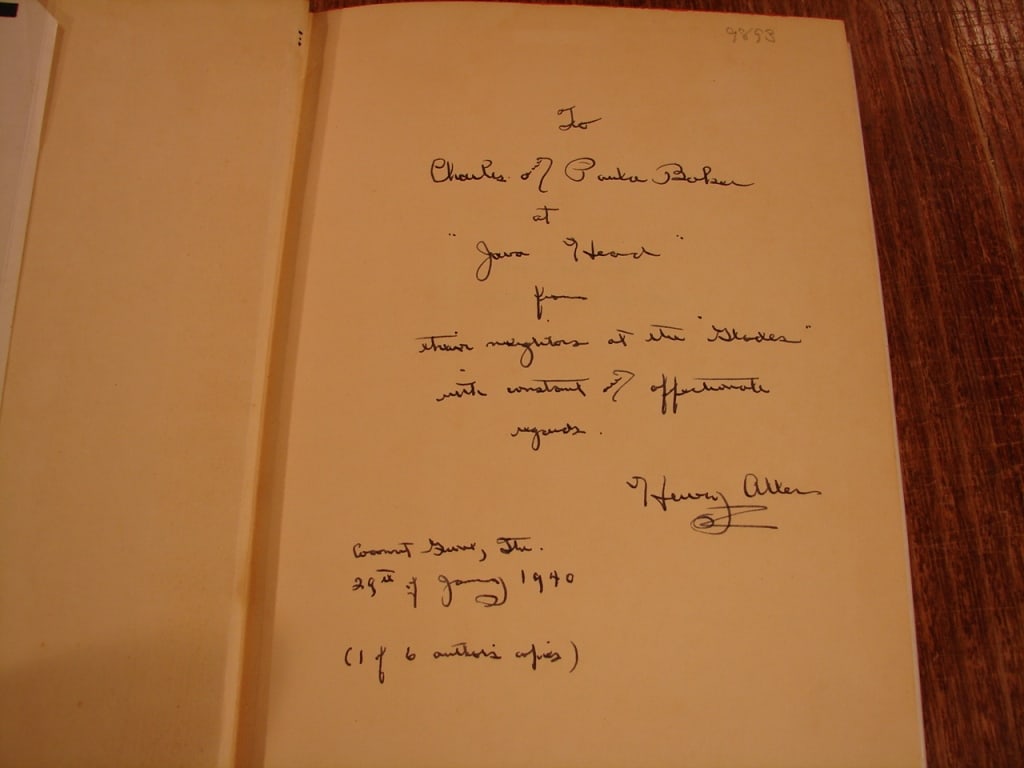 9893
To
Charles & Pauka Baker
at
"Java Head"
from
their neighbors at the "Glades"
with constant & affectionate
regards.
Hervey Allen
Coconut Grove, Fla.
29th of Jany 1940
(1 of 6 author's copies)